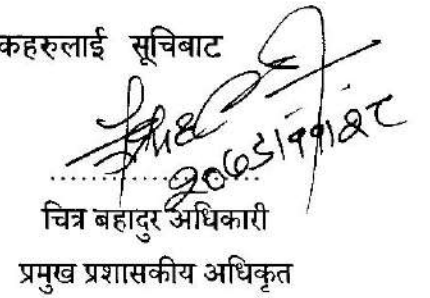 कहरुलाई सूचिबाट
चित्र बहादुर अधिकारी
प्रमुख प्रशासकीय अधिकृत